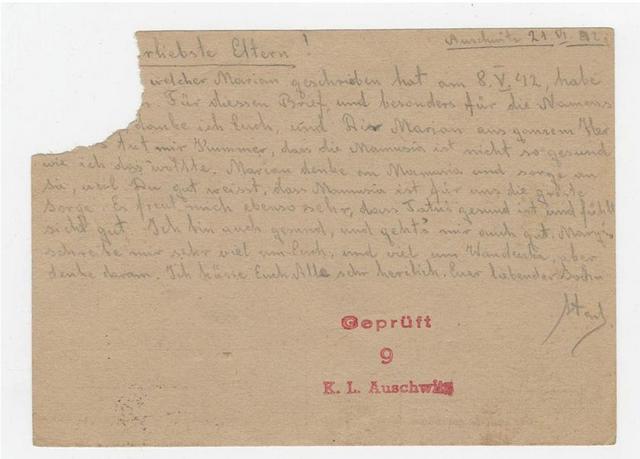 rliebste Eltern! Auschwitz 21. VI. 42.
welcher Marian geschrieben hat am 8. V. 42, habe
Für diessen Brief, und besonders für die Namens
danke ich Euch, und Dir Marian aus ganzem Her
tut mir Kummer, das die Mamusia ist nicht so gesund
wie ich das wollte. Marian denke an Mamusia und sorge an
sie, weil Du gut weisst, dass Mamusia ist für uns die
sorge. Es freut mich ebenso sehr, dass Tatuś gesund ist und fühlt
sich gut. Ich bin auch gesund, und geht's mir auch gut.
schreibe mir sehr viel um Euch, und viel um aber
denke daran. Ich küsse Euch Alle sehr herzlich. Euer liebender Sohn
Geprüft
9
K. L. Auschwitz